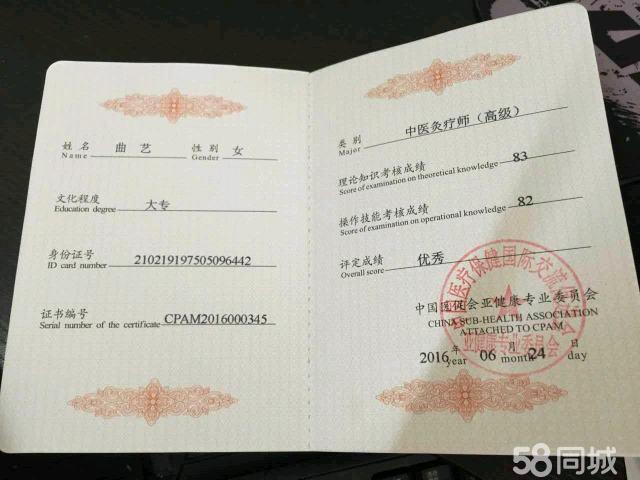 姓名 曲艺 性别 女
Name Gender
文化程度 大专
Education degree
身份证号
ID card number 210219197505096442
证书编号
Serial number of the certificate CPAM2016000345
类别 中医灸疗师（高级）
Major
理论知识考核成绩 83
Score of examination on theoretical knowledge
操作技能考核成绩 82
Score of examination on operational knowledge
评定成绩 优秀
Overall score
中国医促会亚健康专业委员会
CHINA SUB-HEALTH ASSOCIATION
ATTACHED TO CPAM
2016 年 06 月 24 日
year month day
中国医疗保健国际交流促进会
亚健康专业委员会
58同城